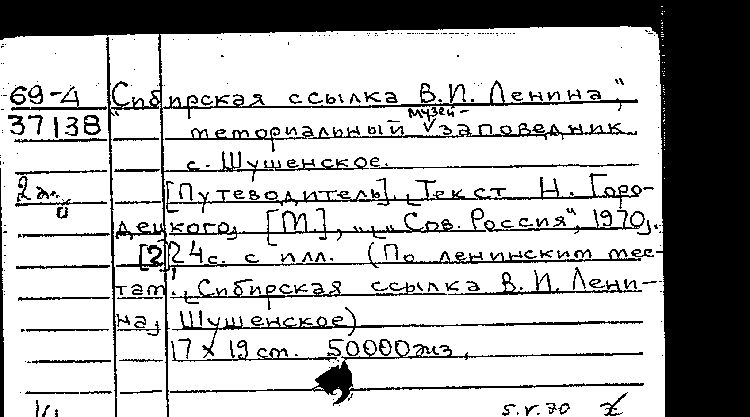 69-4 „Сибирская ссылка В.И. Ленина",
37138 мемориальный музей-заповедник
с. Шушенское.
2 эк. [Путеводитель]. [Текст Н. Горо-
децкого]. [М.], „Сов. Россия", 1970].
[2]24с. с илл. (По ленинским мес-
там. [Сибирская ссылка В. И. Лени-
на, Шушенское)
17 х 19 см. 50000экз.
5.V.70